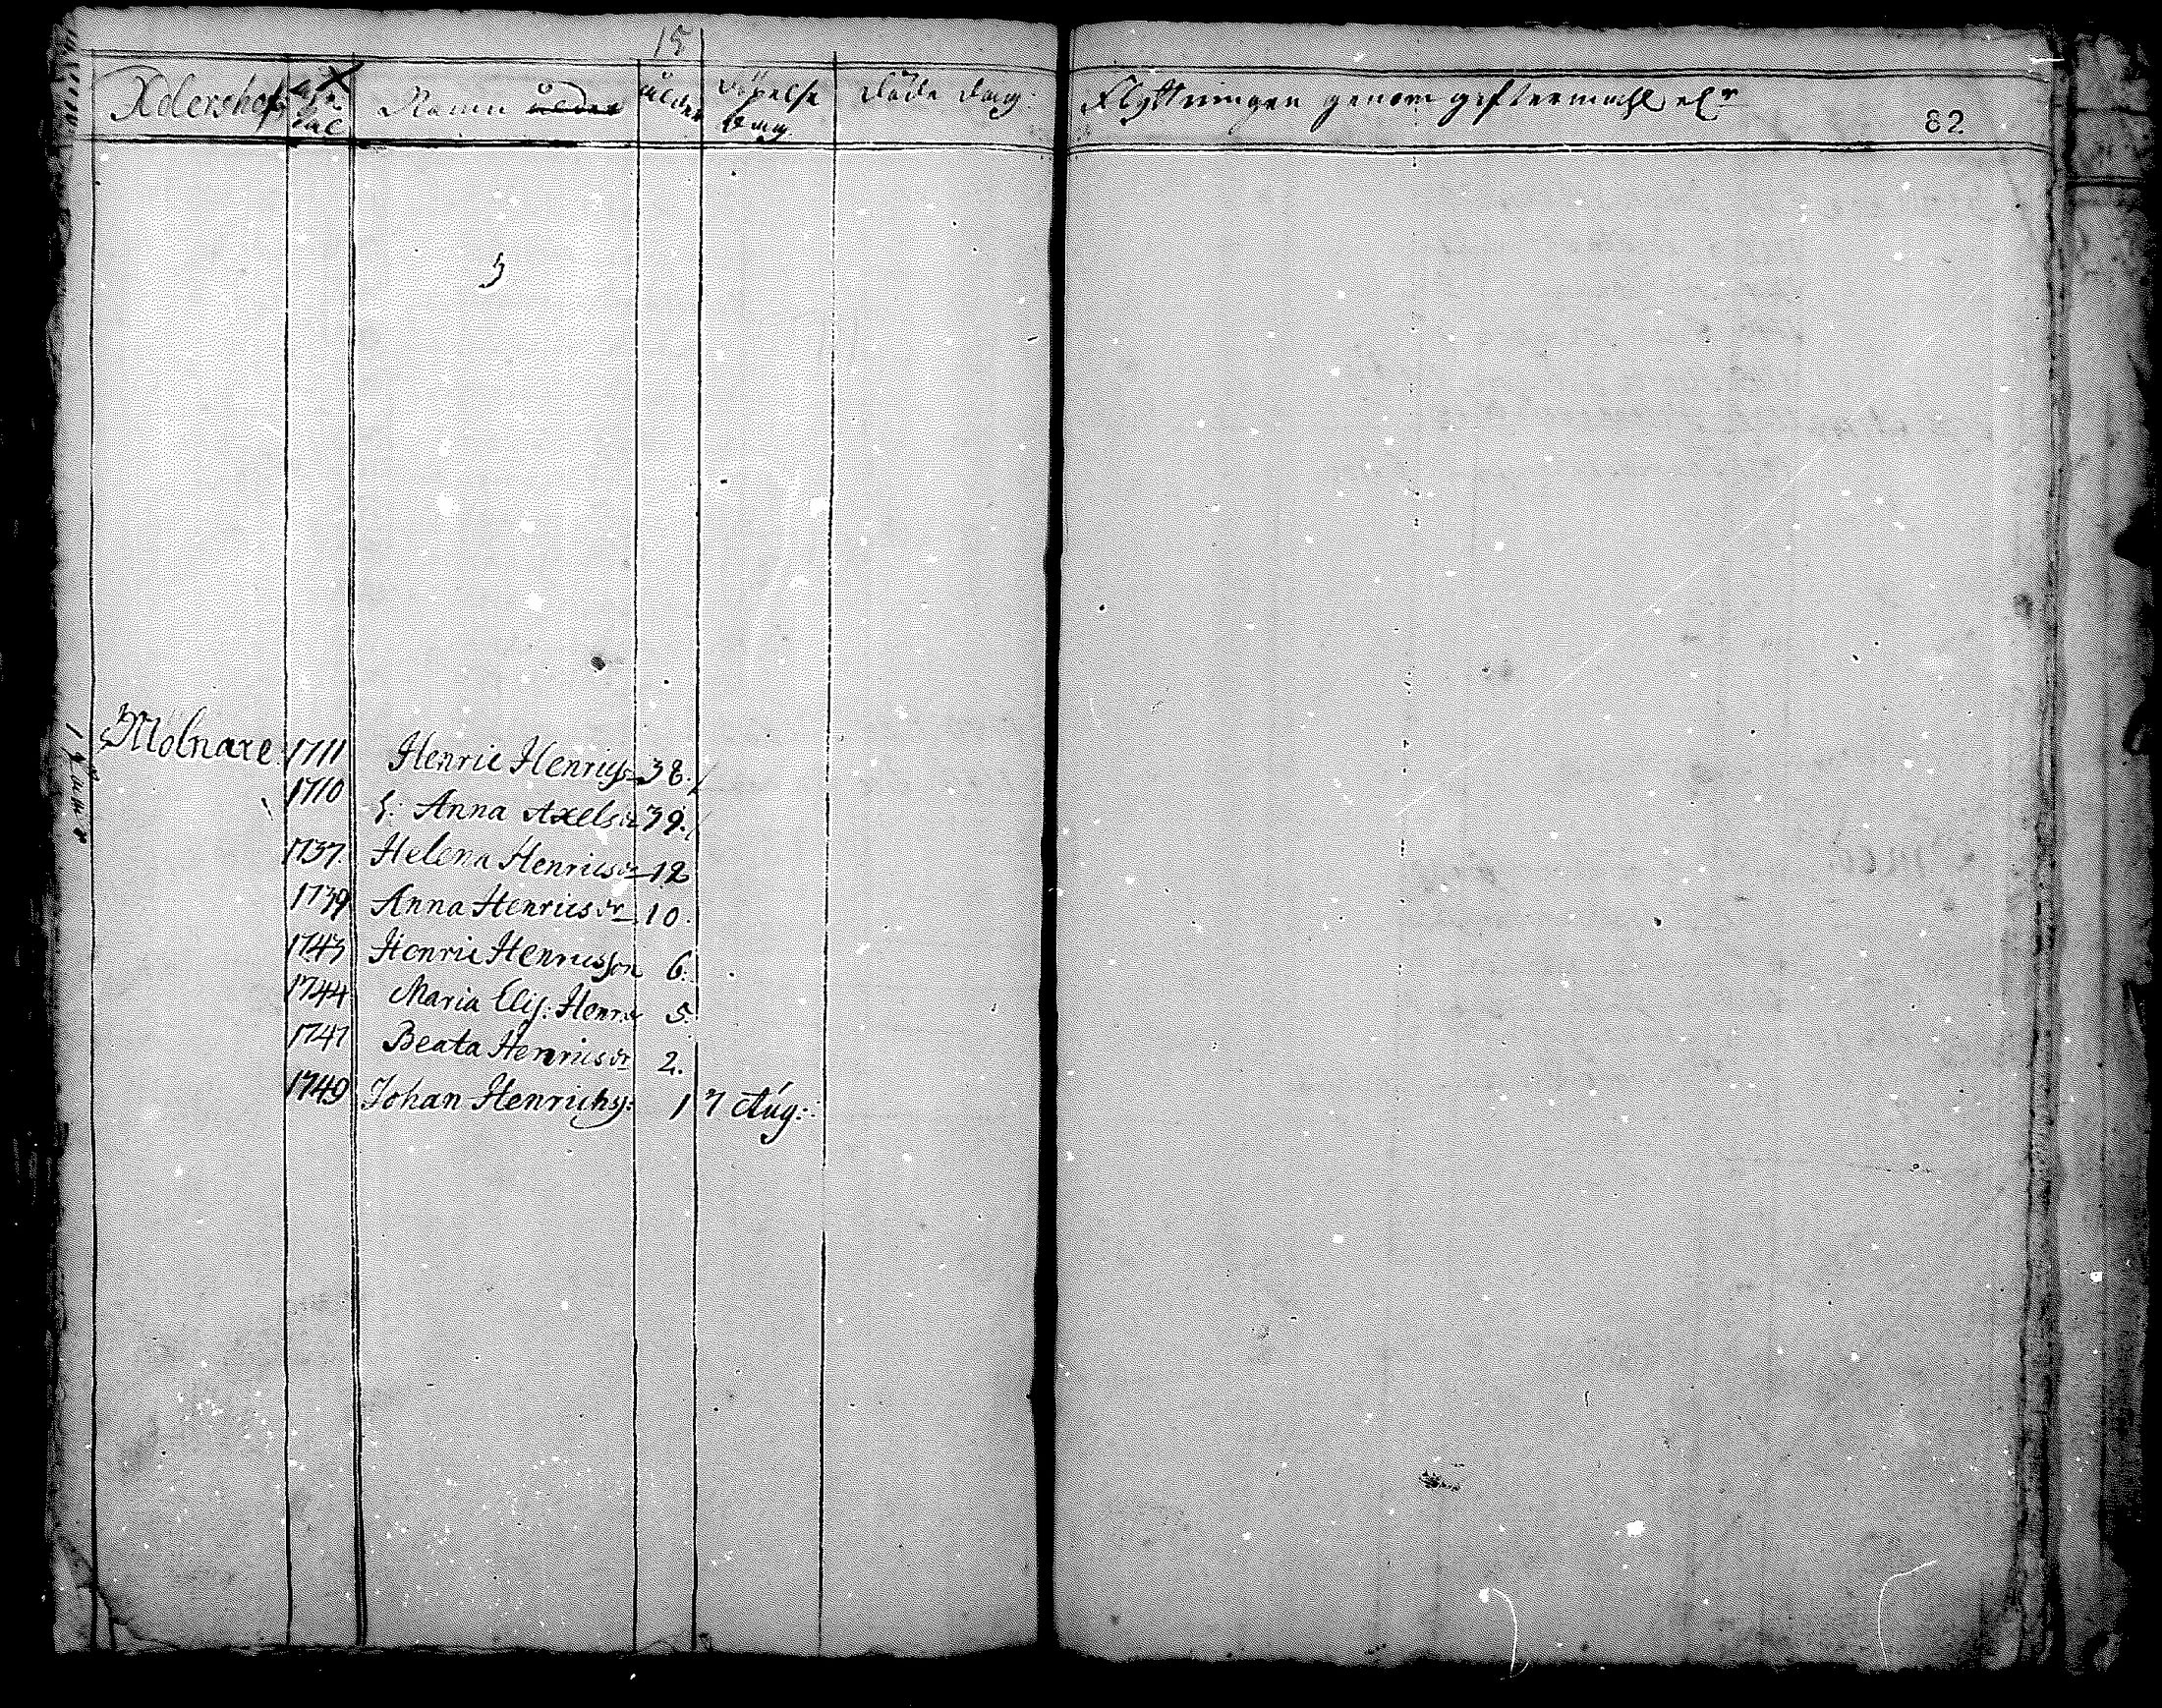 15
Adershof Namn ålder ålder döpelse dag döde dag Flyttningen genom giftermåhl elr 82
Molnare 1711 Henric Henricsson 38.
1710 h: Anna Axelsdr 39.
1737. Helena Henricsdr 12
1739 Anna Henricsdr 10.
1743 Henric Henricsson 6.
1744 Maria Elis: Henr.dr 5.
1747 Beata Henricsdr 2.
1749 Johan Henrichs: 1 7 Aug: